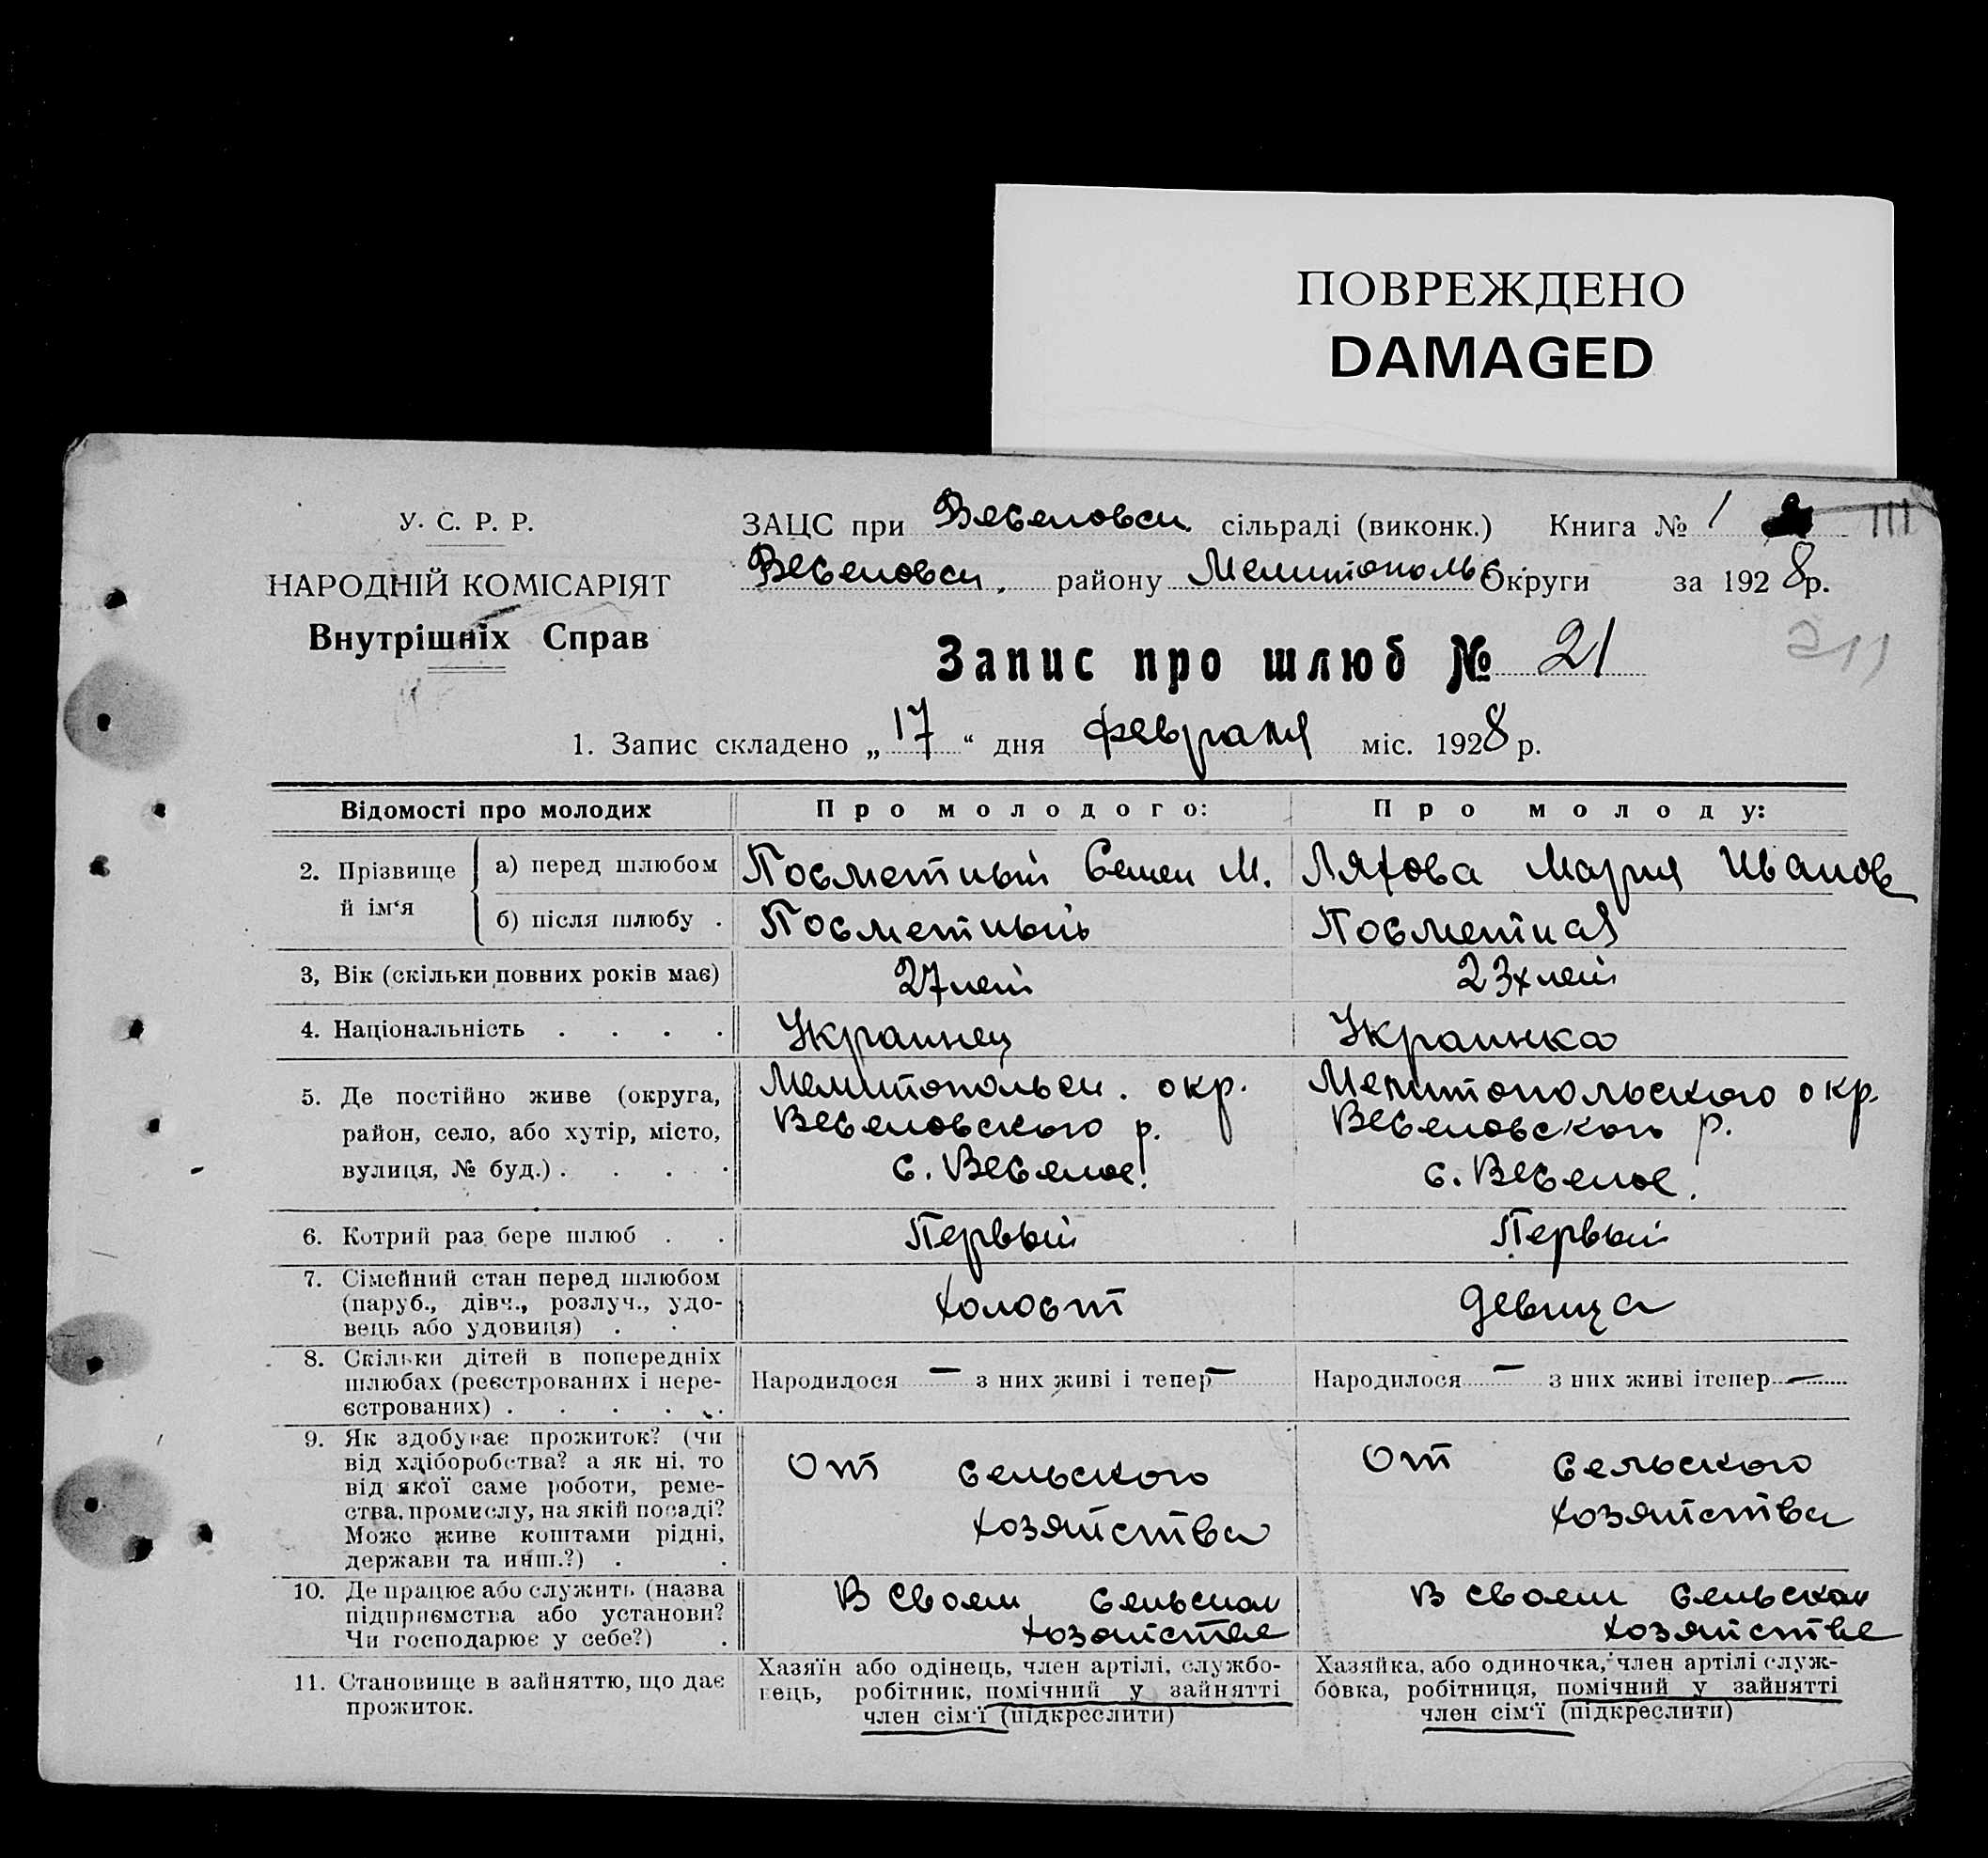 ПОВРЕЖДЕНО
DAMAGED
У. С. Р. Р.
НАРОДНІЙ КОМІСАРІЯТ
Внутрішніх Справ
ЗАЦС при Веселовск. сільраді (виконк.) Книга № 1
Веселовск. району Мелитополь Округи за 1928 р.
Запис про шлюб № 21
211
1. Запис складено „17“ дня февраля міс. 1928 р.
Відомості про молодих
Про молодого:
Про молоду:
2. Прізвище й ім‘я
а) перед шлюбом
Посметный Семен М.
Ляхова Мария Иванов
б) після шлюбу .
Посметный
Посметная
3, Вік (скільки повних років має)
27 лет
23х лет
4. Національність . . . .
Украинец
Украинка
5. Де постійно живе (округа,
район, село, або хутір, місто,
вулиця, № буд.) . . . .
Мелитопольск. окр.
Веселовского р.
с. Веселое.
Мелитопольского окр.
Веселовского р.
с. Веселое.
6. Котрий раз бере шлюб . .
Первый
Первый
7. Сімейний стан перед шлюбом
(паруб., дівч., розлуч., удо-
вець або удовиця) . .
Холост
девица
8. Скільки дітей в попередніх
шлюбах (реєстрованих і нере-
єстрованих) . . . . .
Народилося — з них живі і тепер —
Народилося — з них живі ітепер —
9. Як здобуває прожиток? (чи
від хліборобства? а як ні, то
від якої саме роботи, реме-
ства, промислу, на якій посаді?
Може живе коштами рідні,
держави та инш.?) . .
От сельского
хозяйства
От сельского
хозяйства
10. Де працює або служить (назва
підприємства або установи?
Чи господарює у себе?) .
В своем сельском
хозяйстве
В своем сельском
хозяйстве
11. Становище в зайняттю, що дає
прожиток.
Хазяїн або одінець, член артілі, службо-
вець, робітник, помічний у зайнятті
член сім‘ї (підкреслити)
Хазяйка, або одиночка, член артілі служ-
бовка, робітниця, помічний у зайнятті
член сім‘ї (підкреслити)